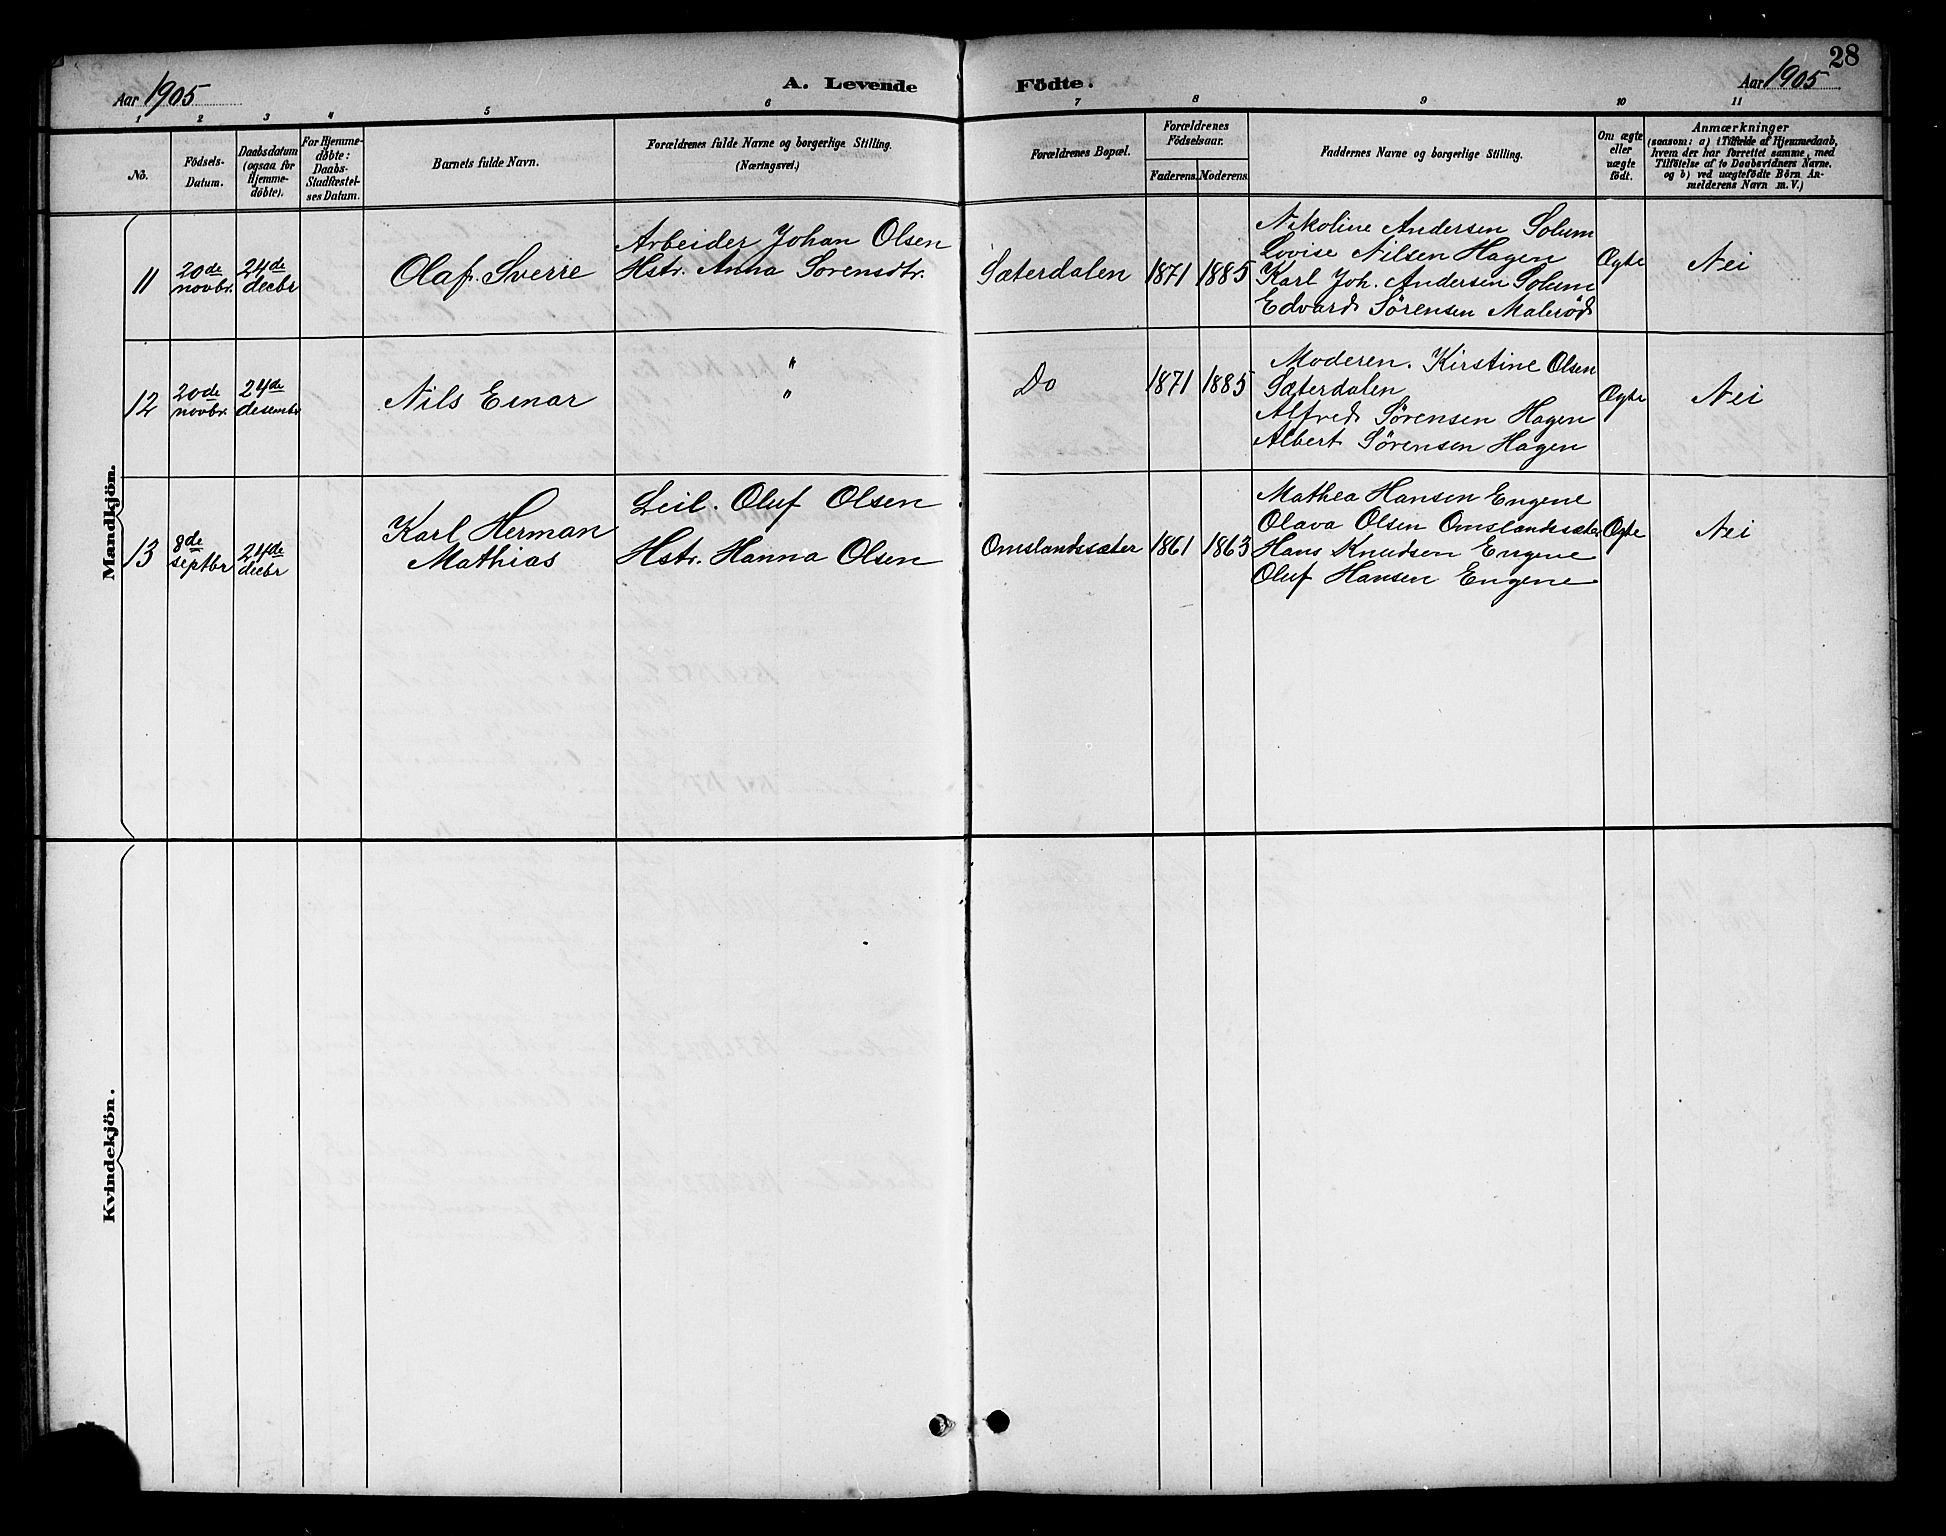 28
Aar 1905
A. Levende Födte.
Aar 1905
1 2 3 4 5 6 7 8 9 10 11
No.
Födsels-
Datum.
Daabsdatum
(ogsaa for
Hjemme-
døbte).
For Hjemme-
døbte:
Daabs-
Stadfæstel-
ses Datum.
Barnets fulde Navn.
Forældrenes fulde Navne og borgerlige Stilling.
(Næringsvei.)
Forældrenes Bopæl.
Forældrenes
Födselsaar.
Faderens. Moderens.
Faddernes Navne og borgerlige Stilling.
Om ægte
eller
uægte
födt.
Anmærkninger
(saasom: a) i Tilfælde af Hjemmedaab,
hvem der har forrettet samme, med
Tilföielse af to Daabsvidners Navne.
og b) ved uægtefödte Börn An-
melderens Navn m. V.)
Mandkjön.
11
20de
novbr.
24de
decbr
Olaf Sverre
Arbeider Johan Olsen
Hstr. Anna Sorensdtr.
Sæterdalen
1871
1885
Nikoline Andersen Solum
Lovise Nilsen Hagen
Karl Joh. Andersen Solum
Edvard Sørensen Malerød
Ægte
Nei
12
20de
novbr.
24de
desembr
Nils Einar
"
"
Do
1871
1885
Moderen. Kirstine Olsen
Sæterdalen
Alfred Sørensen Hagen
Albert Sørensen Hagen
Ægte
Nei
13
8de
septbr
24de
decbr
Karl Herman
Mathias
Leil. Oluf Olsen
Hstr. Hanna Olsen
Omslandssæter
1861
1863
Mathea Hansen Engene
Olava Olsen Omslandssæter
Hans Knudsen Engene
Oluf Hansen Engene
Ægte
Nei
Kvindekjön.